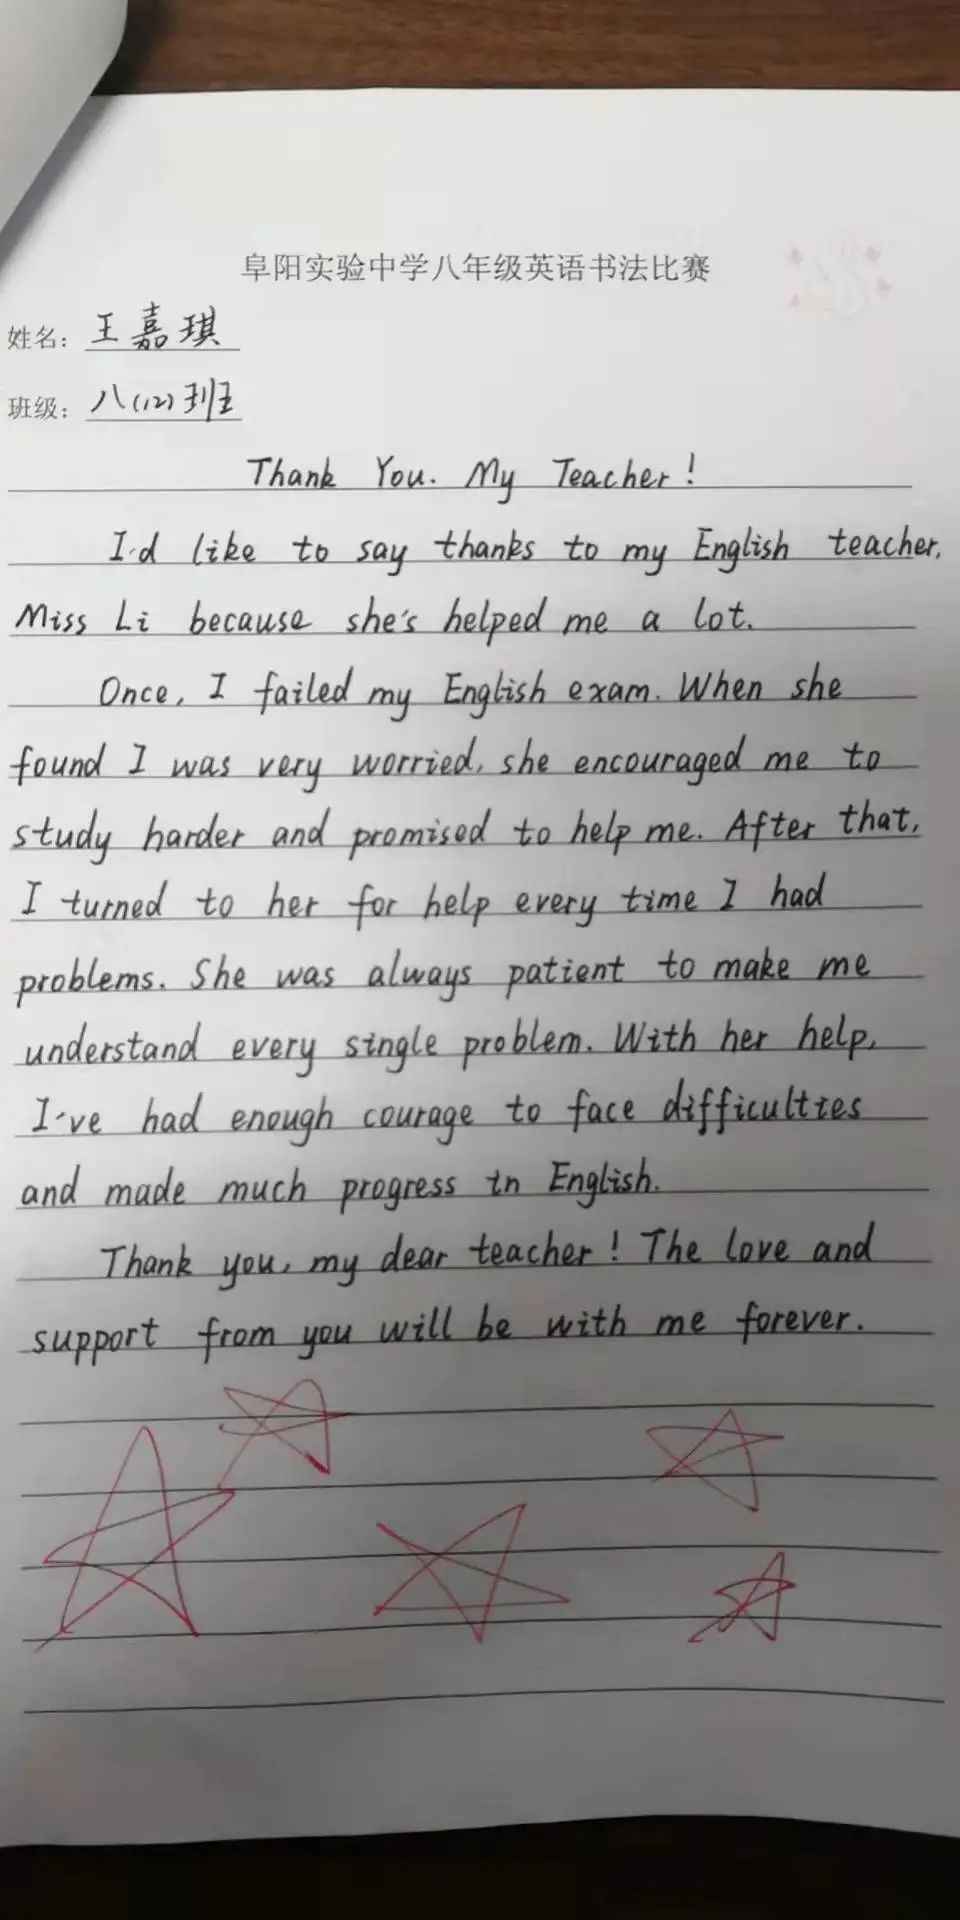 阜阳实验中学八年级英语书法比赛
姓名: 王嘉琪
班级: 八(12)班
Thank You. My Teacher!
I'd like to say thanks to my English teacher,
Miss Li because she's helped me a lot.
Once, I failed my English exam. When she
found I was very worried, she encouraged me to
study harder and promised to help me. After that,
I turned to her for help every time I had
problems. She was always patient to make me
understand every single problem. With her help,
I've had enough courage to face difficulties
and made much progress in English.
Thank you, my dear teacher! The love and
support from you will be with me forever.